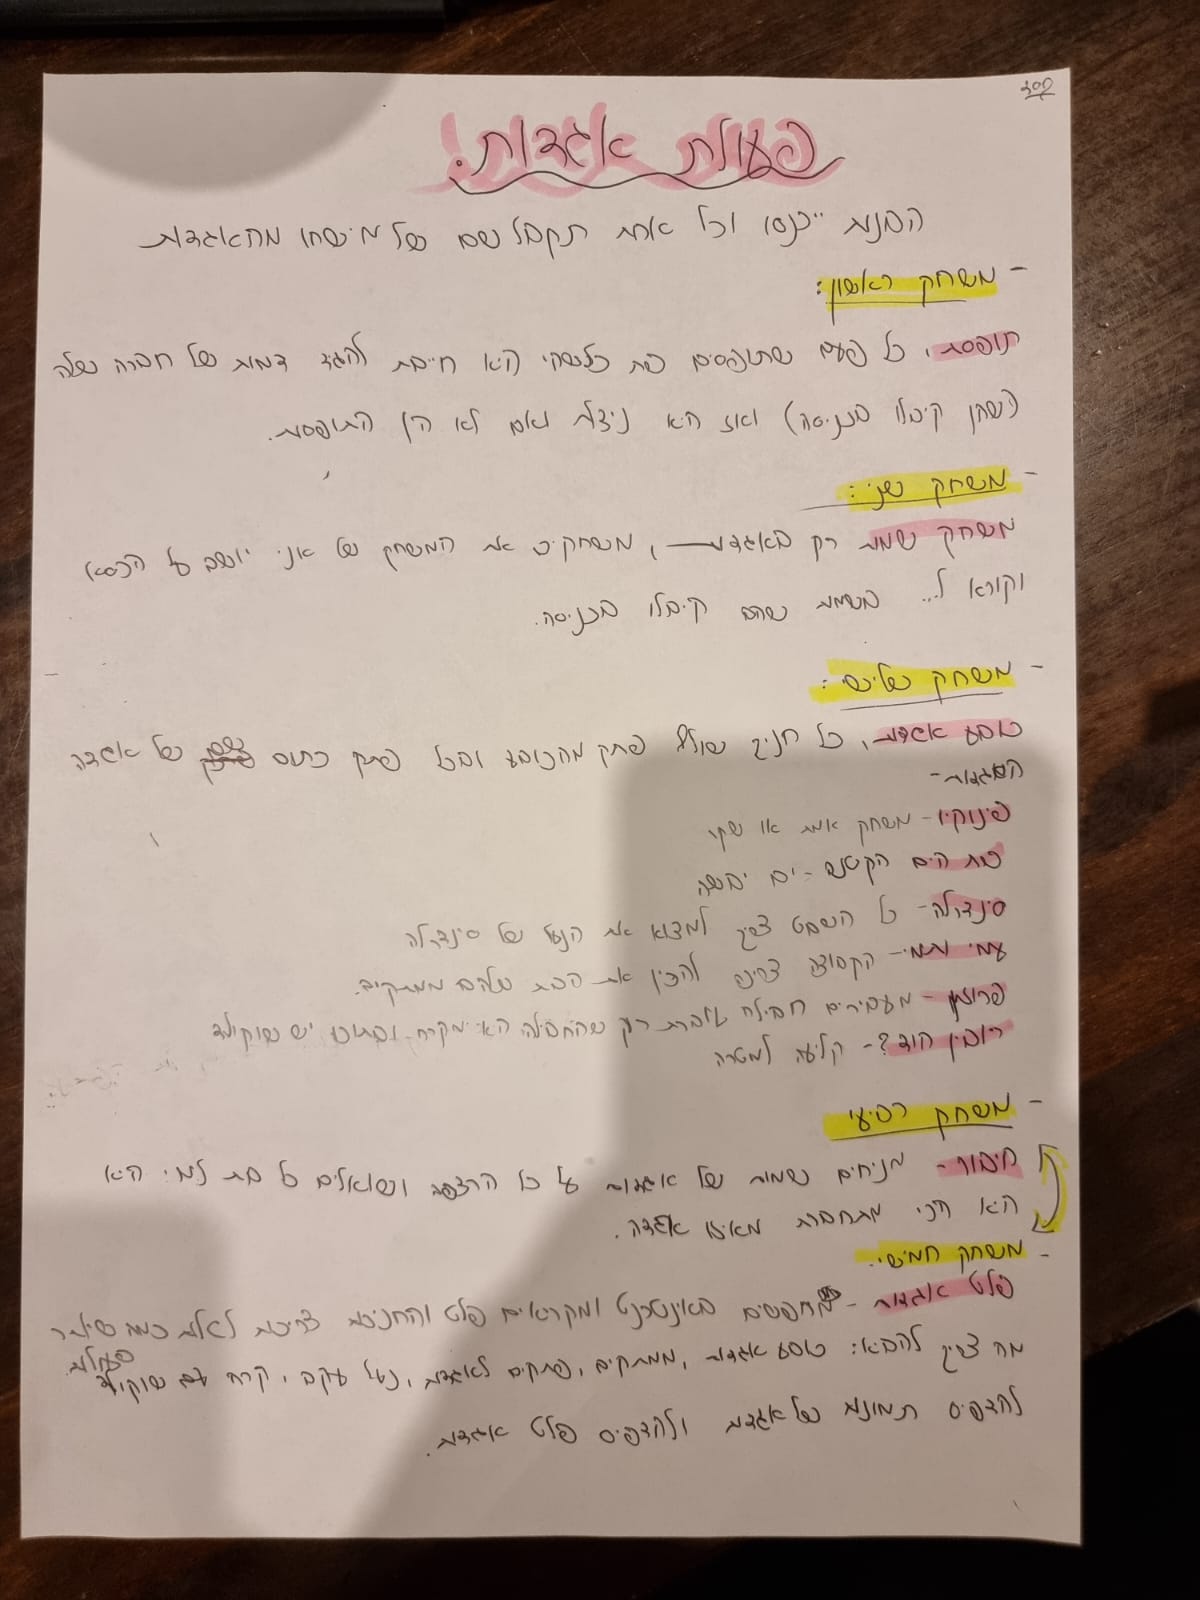 בס"ד
פעולת אגדות!
הבנות ייכנסו וכל אחת תקבל שם של מישהו מהאגדות
- משחק ראשון:
תופסת, כל פעם שתופסים בת כלשהי היא חייבת להגיד דמות של חברה שלה
(שהן קיבלו בכניסה) ואז היא ניצלת ואם לא הן התופסת.
- משחק שני:
משחק שמות רק באגדות, משחקים את המשחק של אני יושב על הכסא
וקורא ל... בשמות שהם קיבלו בכניסה.
- משחק שלישי:
כובע אגדות, כל חניך שולף פתק מהכובע ובכל פתק כתוב שם של אגדה
האגדות-
פינוקיו - משחק אמת או שקר
בת הים הקטנה - ים יבשה
סינדרלה - כל השבט צריך למצוא את הנעל של סינדרלה
עמי ותמי - הקבוצה צריכה להכין את הבית שלהם ממתקים.
פרוזן - מעבירים חבילה עוברת רק שהחבילה היא מקרח ובתוכו יש שוקולד
רובין הוד? - קליעה למטרה
- משחק רביעי
חיבור - מניחים שמות של אגדות על כל הרצפה ושואלים כל בת למי היא
היא הכי מתחברת מאיזו אגדה.
- משחק חמישי.
בלט אגדות - מחפשים באינטרנט ומקריאים בלט והחניכות צריכות לגלות כמה שיותר
מה צריך להביא: כובע אגדות, ממתקים, פתקים לאגדות, נעל עקב, קרח עם שוקולד
להדפיס תמונות של אגדות ולהדפיס בלט אגדות.